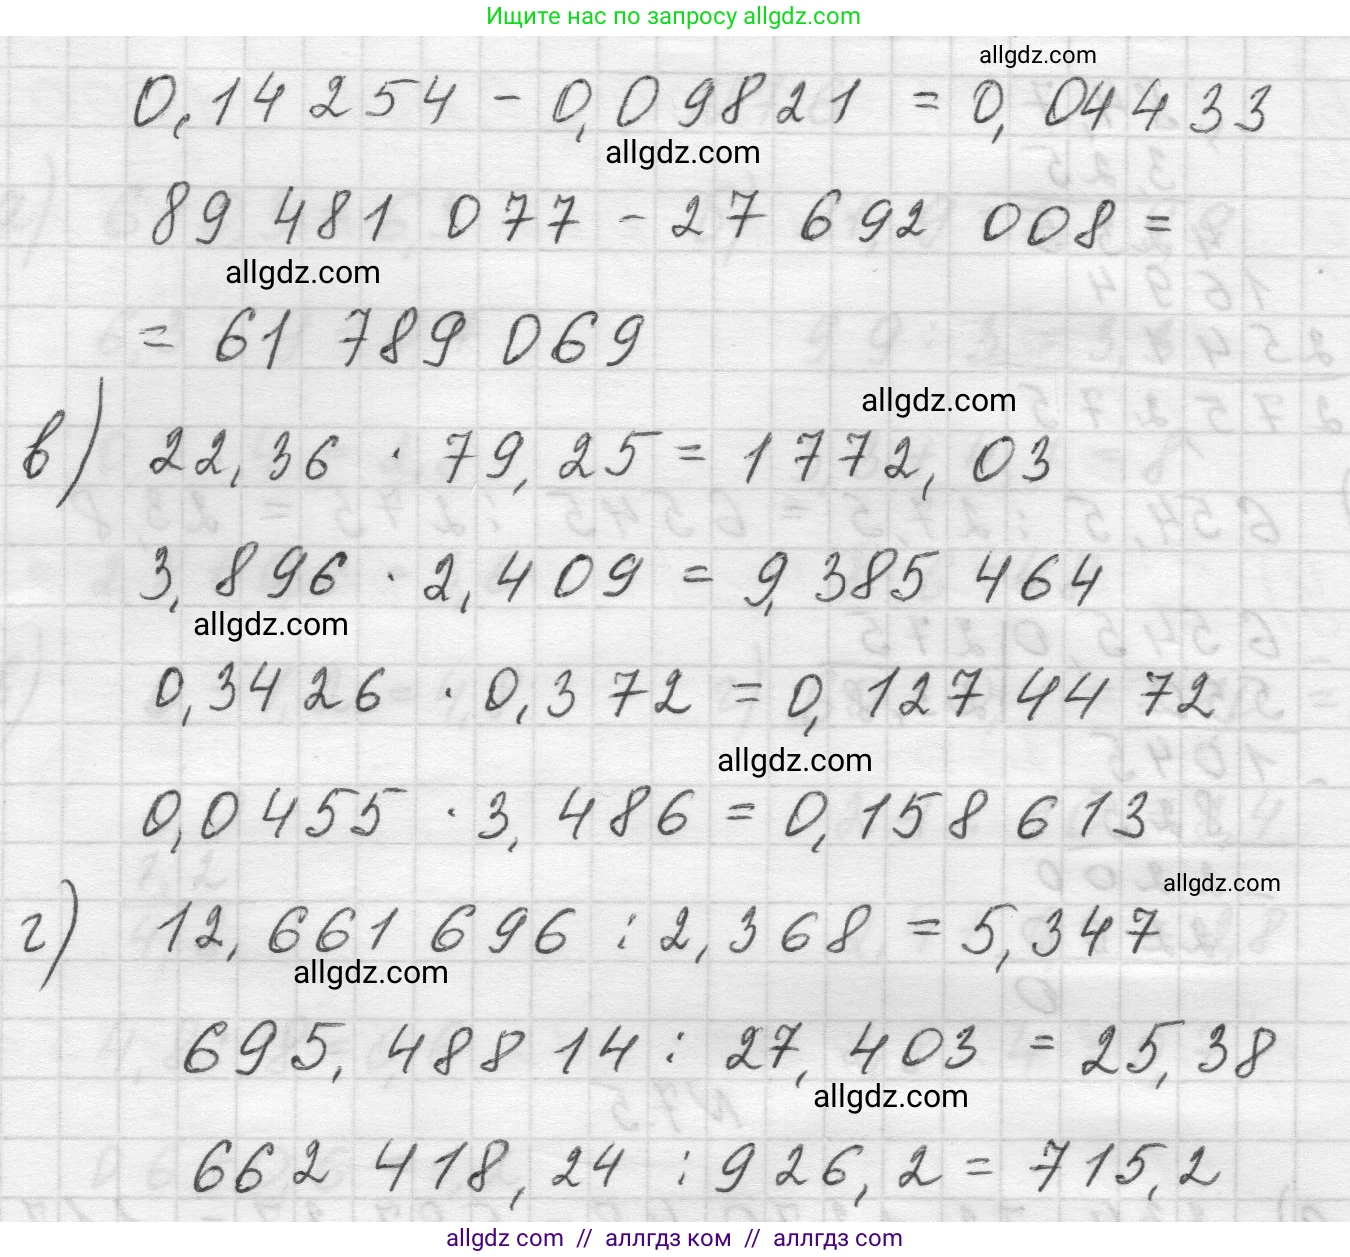 Ищите нас по запросу allgdz.com
allgdz.com
0,14254 - 0,09821 = 0,04433
allgdz.com
89 481 077 - 27 692 008 =
allgdz.com
= 61 789 069
allgdz.com
в) 22,36 · 79,25 = 1772,03
3,896 · 2,409 = 9,385 464
allgdz.com
0,3426 · 0,372 = 0,127 44 72
allgdz.com
0,0455 · 3,486 = 0,158 613
allgdz.com
г) 12,661 696 : 2,368 = 5,347
allgdz.com
695,488 14 : 27,403 = 25,38
allgdz.com
662 418,24 : 926,2 = 715,2
allgdz.com // аллгдз ком // аллгдз com